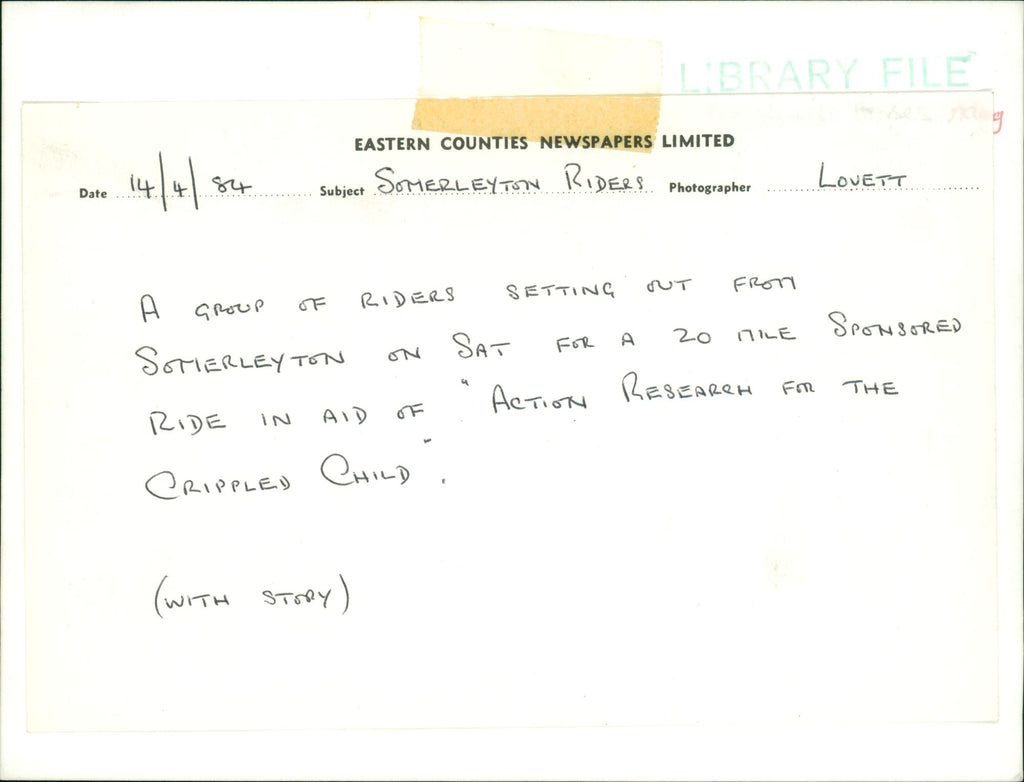 LIBRARY FILE
EASTERN COUNTIES NEWSPAPERS LIMITED
Date 14/4/84 Subject SOMERLEYTON RIDERS Photographer LOVETT
A GROUP OF RIDERS SETTING OUT FROM
SOMERLEYTON ON SAT FOR A 20 MILE SPONSORED
RIDE IN AID OF "ACTION RESEARCH FOR THE
CRIPPLED CHILD".
(WITH STORY)